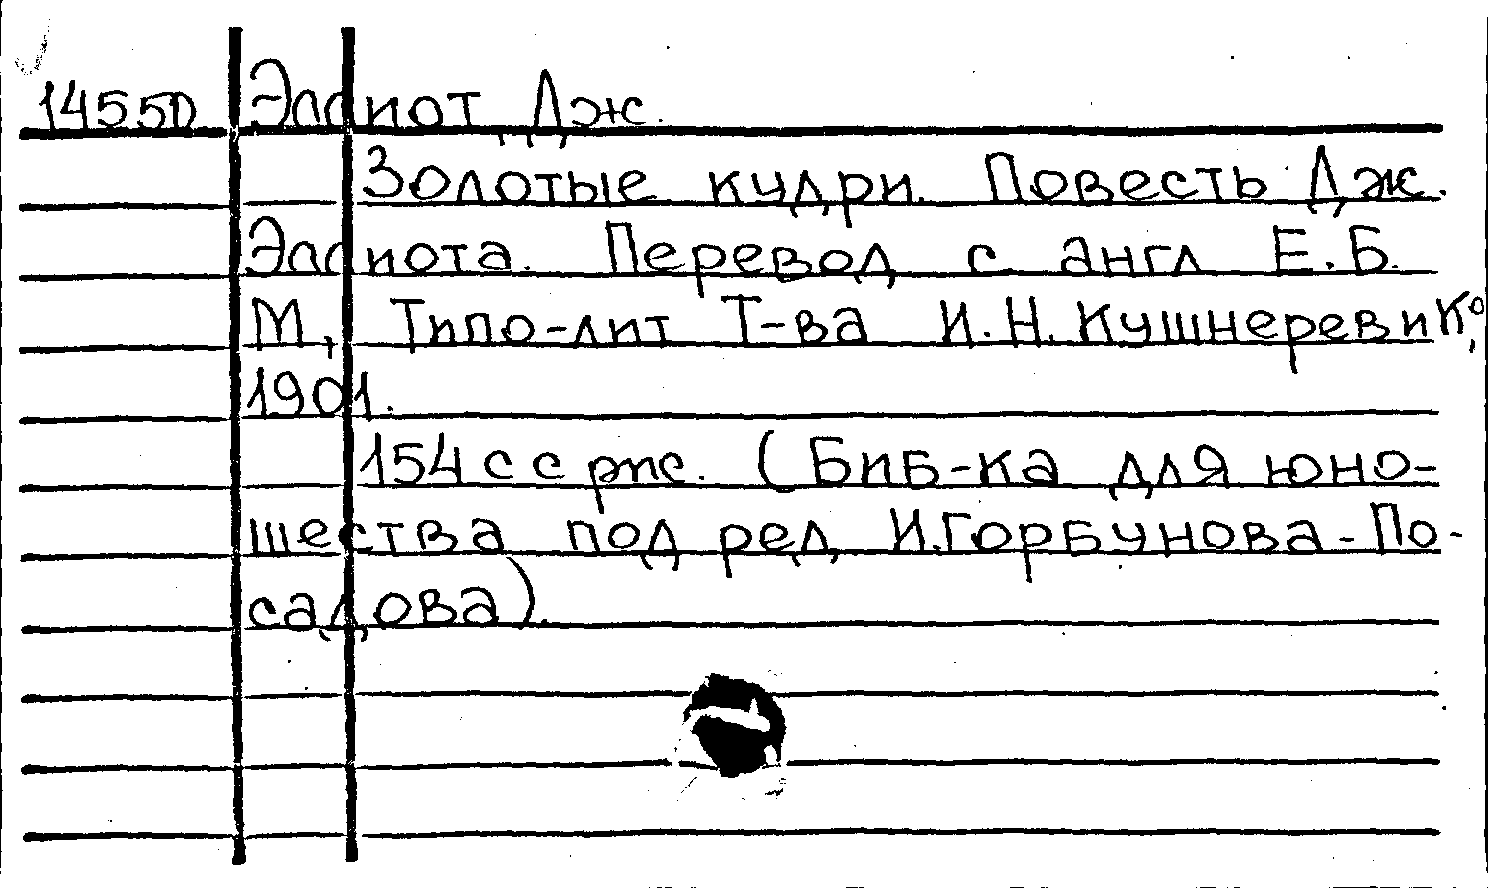 14550 Эллиот Дж.
Золотые кудри. Повесть Дж.
Эллиота. Перевод с англ Е.Б.
М, Типо-лит Т-ва И.Н. Кушнерев и Ко,
1901.
154 с с рис. (Биб-ка для юно-
шества под ред И.Горбунова-По-
садова).